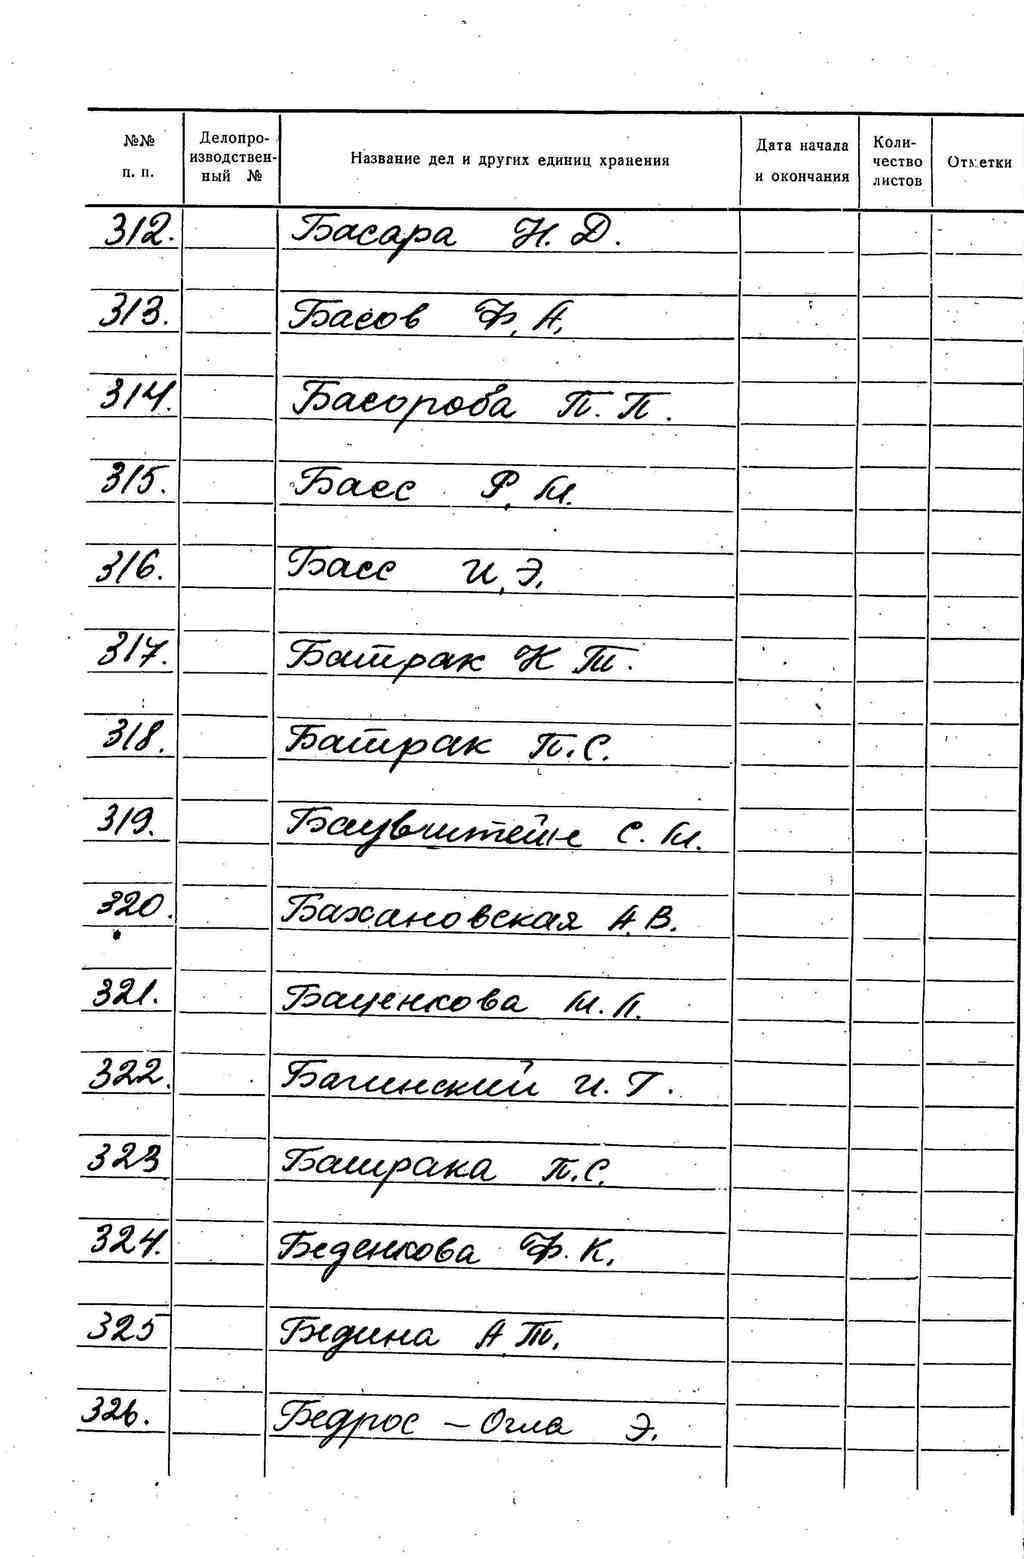 №№ п. п. Делопроизводственный № Название дел и других единиц хранения Дата начала и окончания Количество листов Отметки
312. Басара Н. Д.
313. Басов Ф. А.
314. Басороба П. П.
315. Басс Р. М.
316. Басс И. Э.
317. Батрак К Т.
318. Батрак П. С.
319. Баувштейн С. М.
320. Бахановская А. В.
321. Баценкова М. Л.
322. Багинский И. Г.
323 Батрака П. С.
324. Беденкова Ф. К.
325 Бедина А. Т.
326. Бедрос - Огла Э.